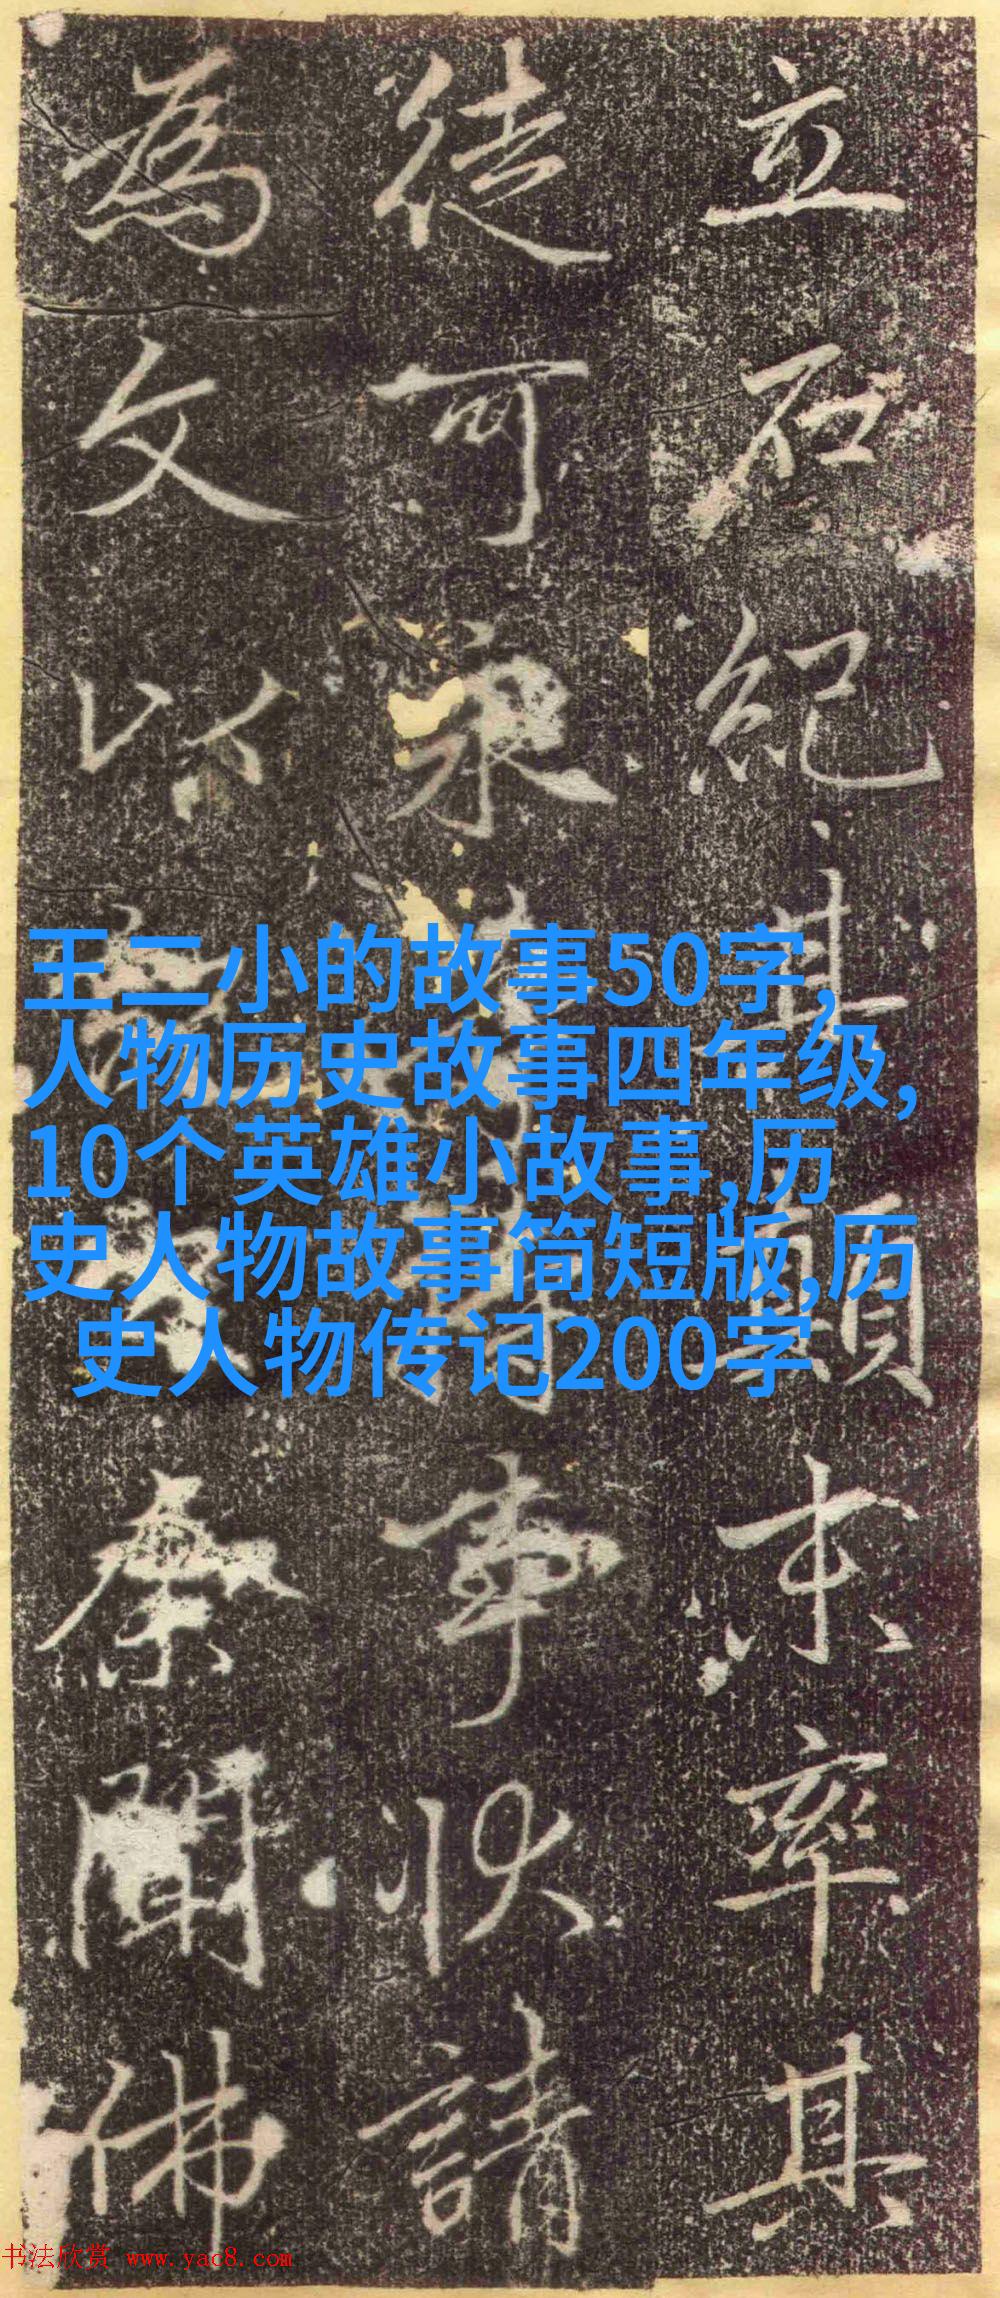 立石紀其顛末率其
徒可事狀請
為文以余聞佛
王二小的故事50字,
人物历史故事四年级,
10个英雄小故事,历
史人物故事简短版,历
史人物传记200字
书法欣赏 www.yac8.com